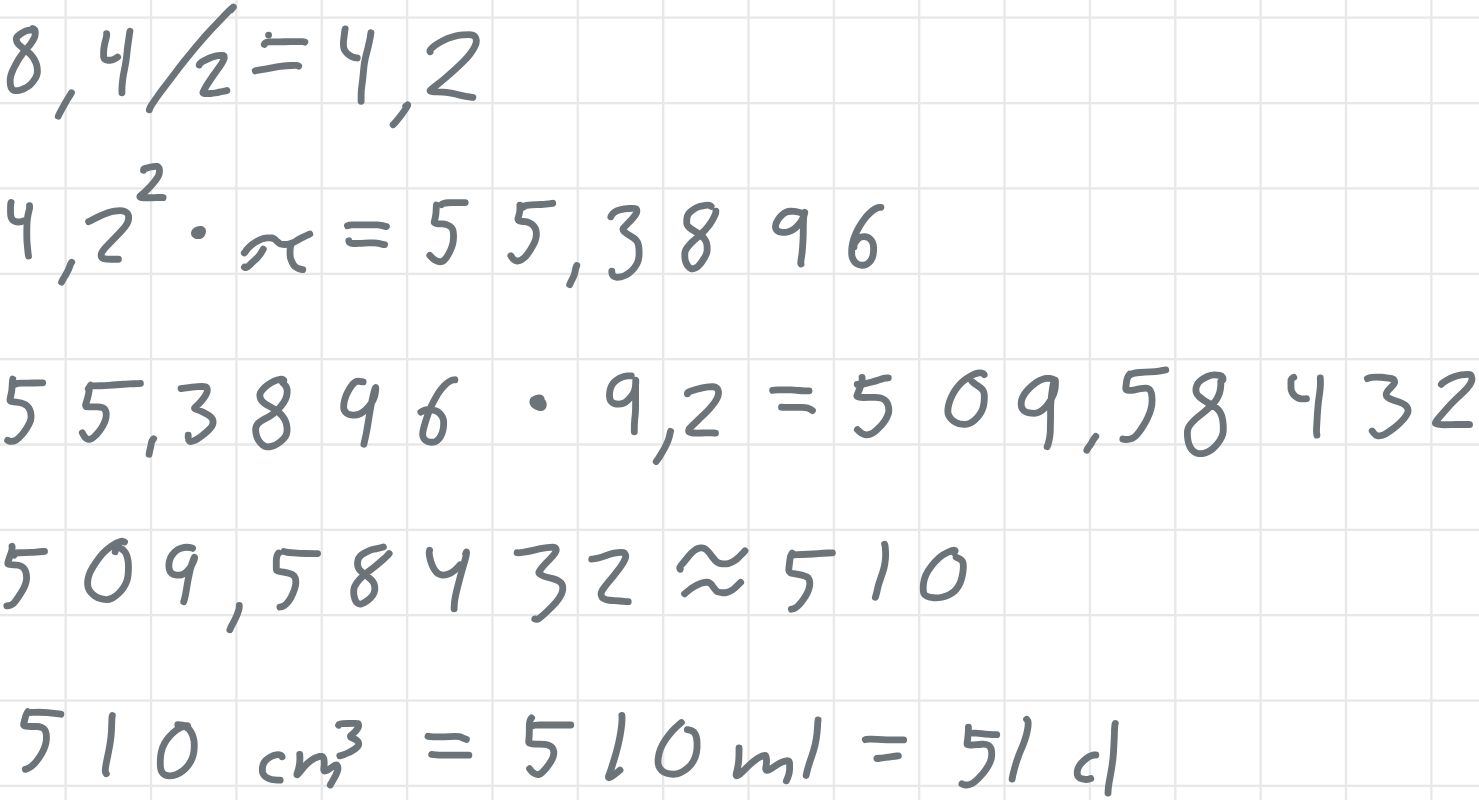 8,4/2=4,2
4,2² · π = 55,3896
55,3896 · 9,2 = 509,58432
509,58432 ≈ 510
510 cm³ = 510 ml = 51 cl